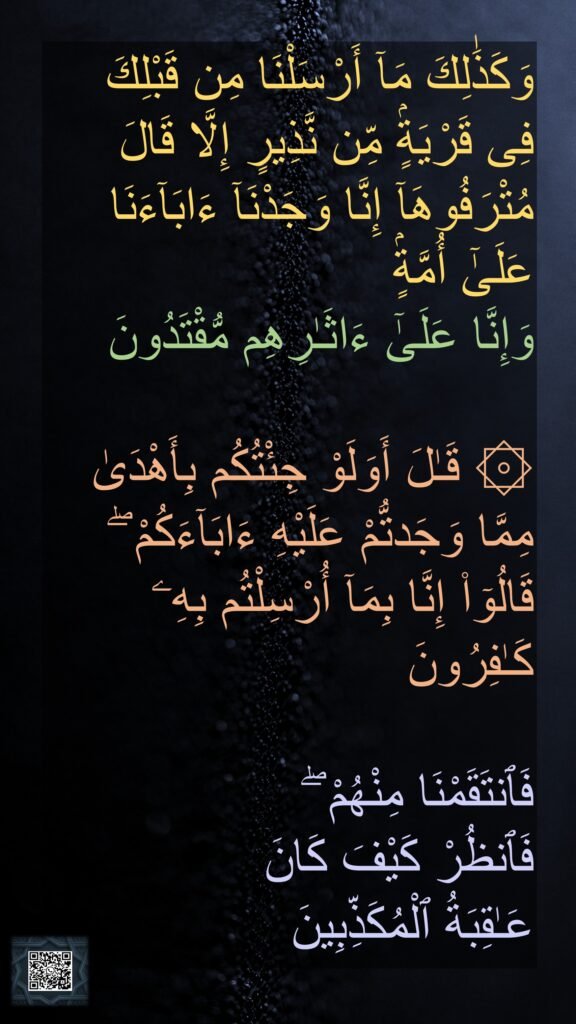 وَكَذَٰلِكَ مَآ أَرْسَلْنَا مِن قَبْلِكَ
فِى قَرْيَةٍۢ مِّن نَّذِيرٍ إِلَّا قَالَ
مُتْرَفُوهَآ إِنَّا وَجَدْنَآ ءَابَآءَنَا
عَلَىٰٓ أُمَّةٍۢ
وَإِنَّا عَلَىٰٓ ءَاثَـٰرِهِم مُّقْتَدُونَ
۞ قَـٰلَ أَوَلَوْ جِئْتُكُم بِأَهْدَىٰ
مِمَّا وَجَدتُّمْ عَلَيْهِ ءَابَآءَكُمْ ۖ
قَالُوٓا۟ إِنَّا بِمَآ أُرْسِلْتُم بِهِۦ
كَـٰفِرُونَ
فَٱنتَقَمْنَا مِنْهُمْ ۖ
فَٱنظُرْ كَيْفَ كَانَ
عَـٰقِبَةُ ٱلْمُكَذِّبِينَ